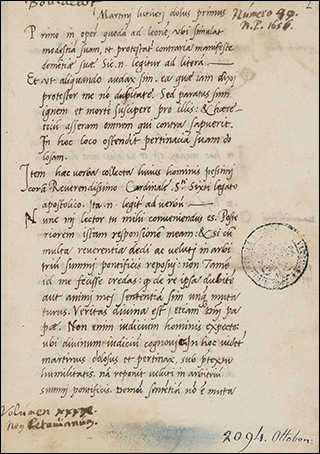 Martini lutheri dolus primus
Numero 49.
N. P. 1656.
Primo in oper quodā ad leonē, vbi simulat
modestiā suam, et protestat contraria manifeste
demētiæ suæ. Sic .n. legitur ad literā.
Et ut aliquando audax sim. ea quæ iam dixi
protestor me nō dubitare. Sed paratus sum
ignem et mortē suscipere pro illis: & hære-
ticū asseram omnem qui contra sapuerit.
In hoc loco ostendit pertinaciā suam do
losam.
Item hæc verba collecta huius hominis pessimi
corā Reverendissimo Cardinale S. Sixti legato
apostolico. Ita .n. legit ad verbū
Nunc mi lector tu mihi conveniendus es. Poste
riorem istam responsionē meam: & si cū
multa reverentia dedi ac veluti in arbi
triū summi pontificis reposui: non tamē
id me fecisse credas: q de re ipsa dubitē
aut animi mei sententiā sim unq̄ muta
turus. Veritas divina est, etiam Dn̄i pa
pæ. Non enim iudicium hominis expecto
vbi divinum iudiciū cognovi. In hoc videt
martinus dolosus et pertinax, sub ptextu
humilitatis. nā reponit veluti in arbitriū
summi pontificis. Demū sentētiā nō ē muta
Volumen XXXX.
non
2094. Ottobon.